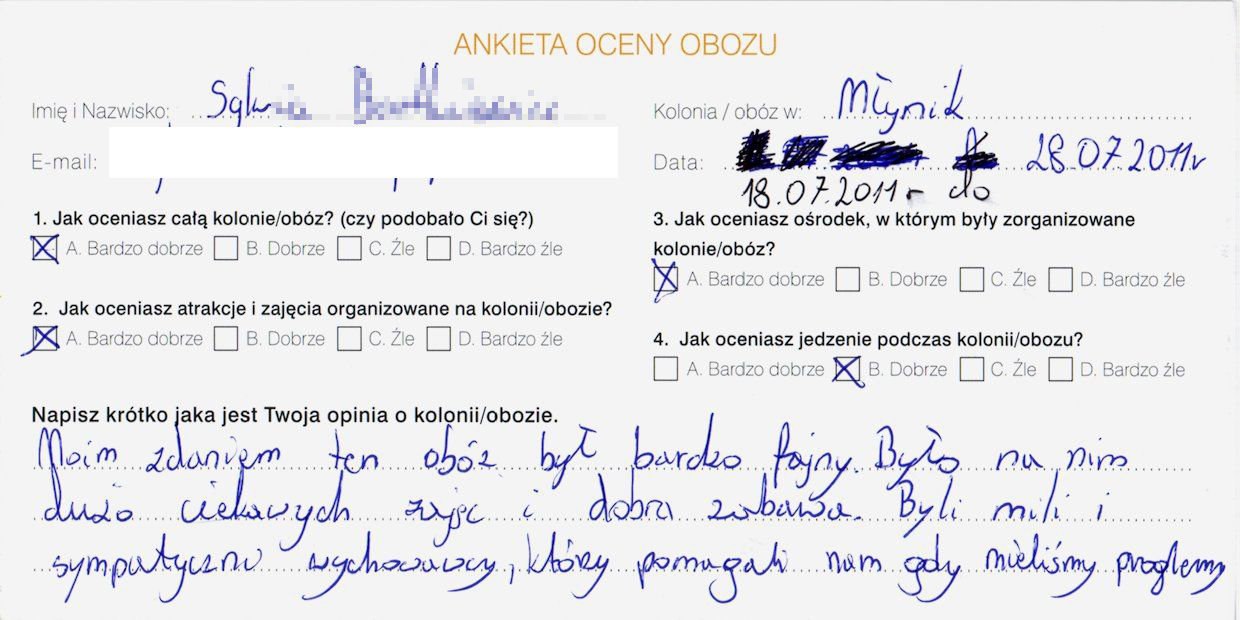 ANKIETA OCENY OBOZU
Imię i Nazwisko:
E-mail:
Kolonia / obóz w: Młynik
Data: 28.07.2011r
18.07.2011r do
1. Jak oceniasz całą kolonie/obóz? (czy podobało Ci się?)
A. Bardzo dobrze B. Dobrze C. Źle D. Bardzo źle
2. Jak oceniasz atrakcje i zajęcia organizowane na kolonii/obozie?
A. Bardzo dobrze B. Dobrze C. Źle D. Bardzo źle
3. Jak oceniasz ośrodek, w którym były zorganizowane
kolonie/obóz?
A. Bardzo dobrze B. Dobrze C. Źle D. Bardzo źle
4. Jak oceniasz jedzenie podczas kolonii/obozu?
A. Bardzo dobrze B. Dobrze C. Źle D. Bardzo źle
Napisz krótko jaka jest Twoja opinia o kolonii/obozie.
Moim zdaniem ten obóz był bardzo fajny. Było na nim
dużo ciekawych zajęć i dobra zabawa. Byli mili i
sympatyczni wychowawcy, którzy pomagali nam gdy mieliśmy proglemy